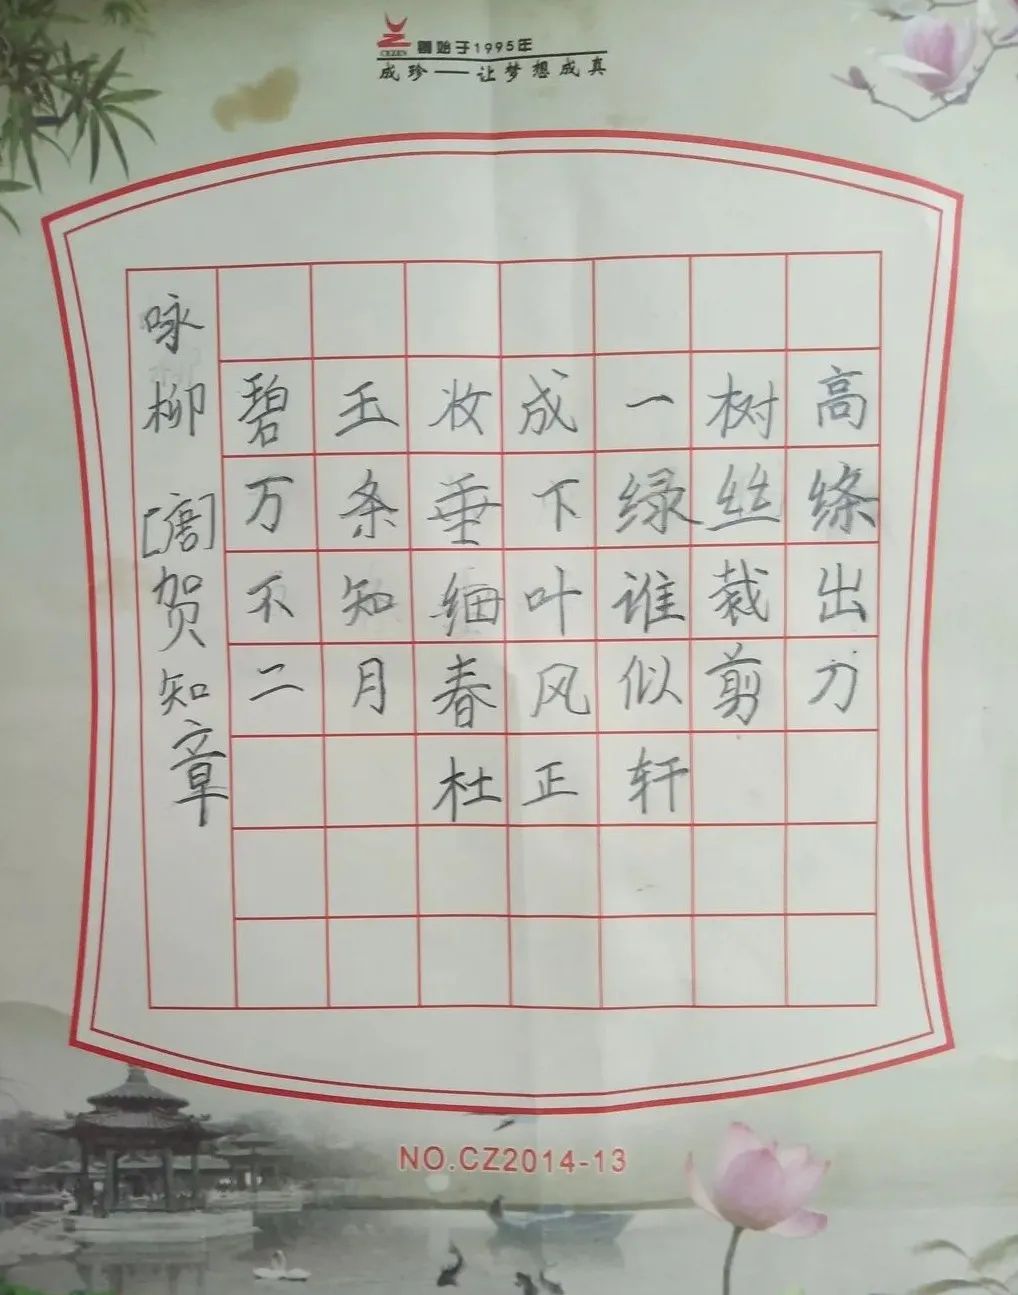 CEZEN 创始于1995年
成珍——让梦想成真
咏柳 [唐]贺知章
碧玉妆成一树高
万条垂下绿丝绦
不知细叶谁裁出
二月春风似剪刀
杜正轩
NO.CZ2014-13